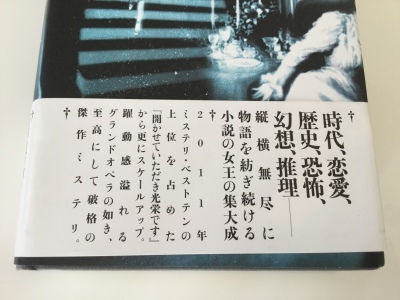 †
時代、恋愛、
歴史、恐怖、
幻想、推理――
縦横無尽に
物語を紡ぎ続ける
小説の女王の集大成
†
2011年
ミステリ・ベストテンの
上位を占めた
『開かせていただき光栄です』
から更にスケールアップ。
躍動感溢れる
グランドオペラの如き、
至高にして破格の
傑作ミステリ。
†